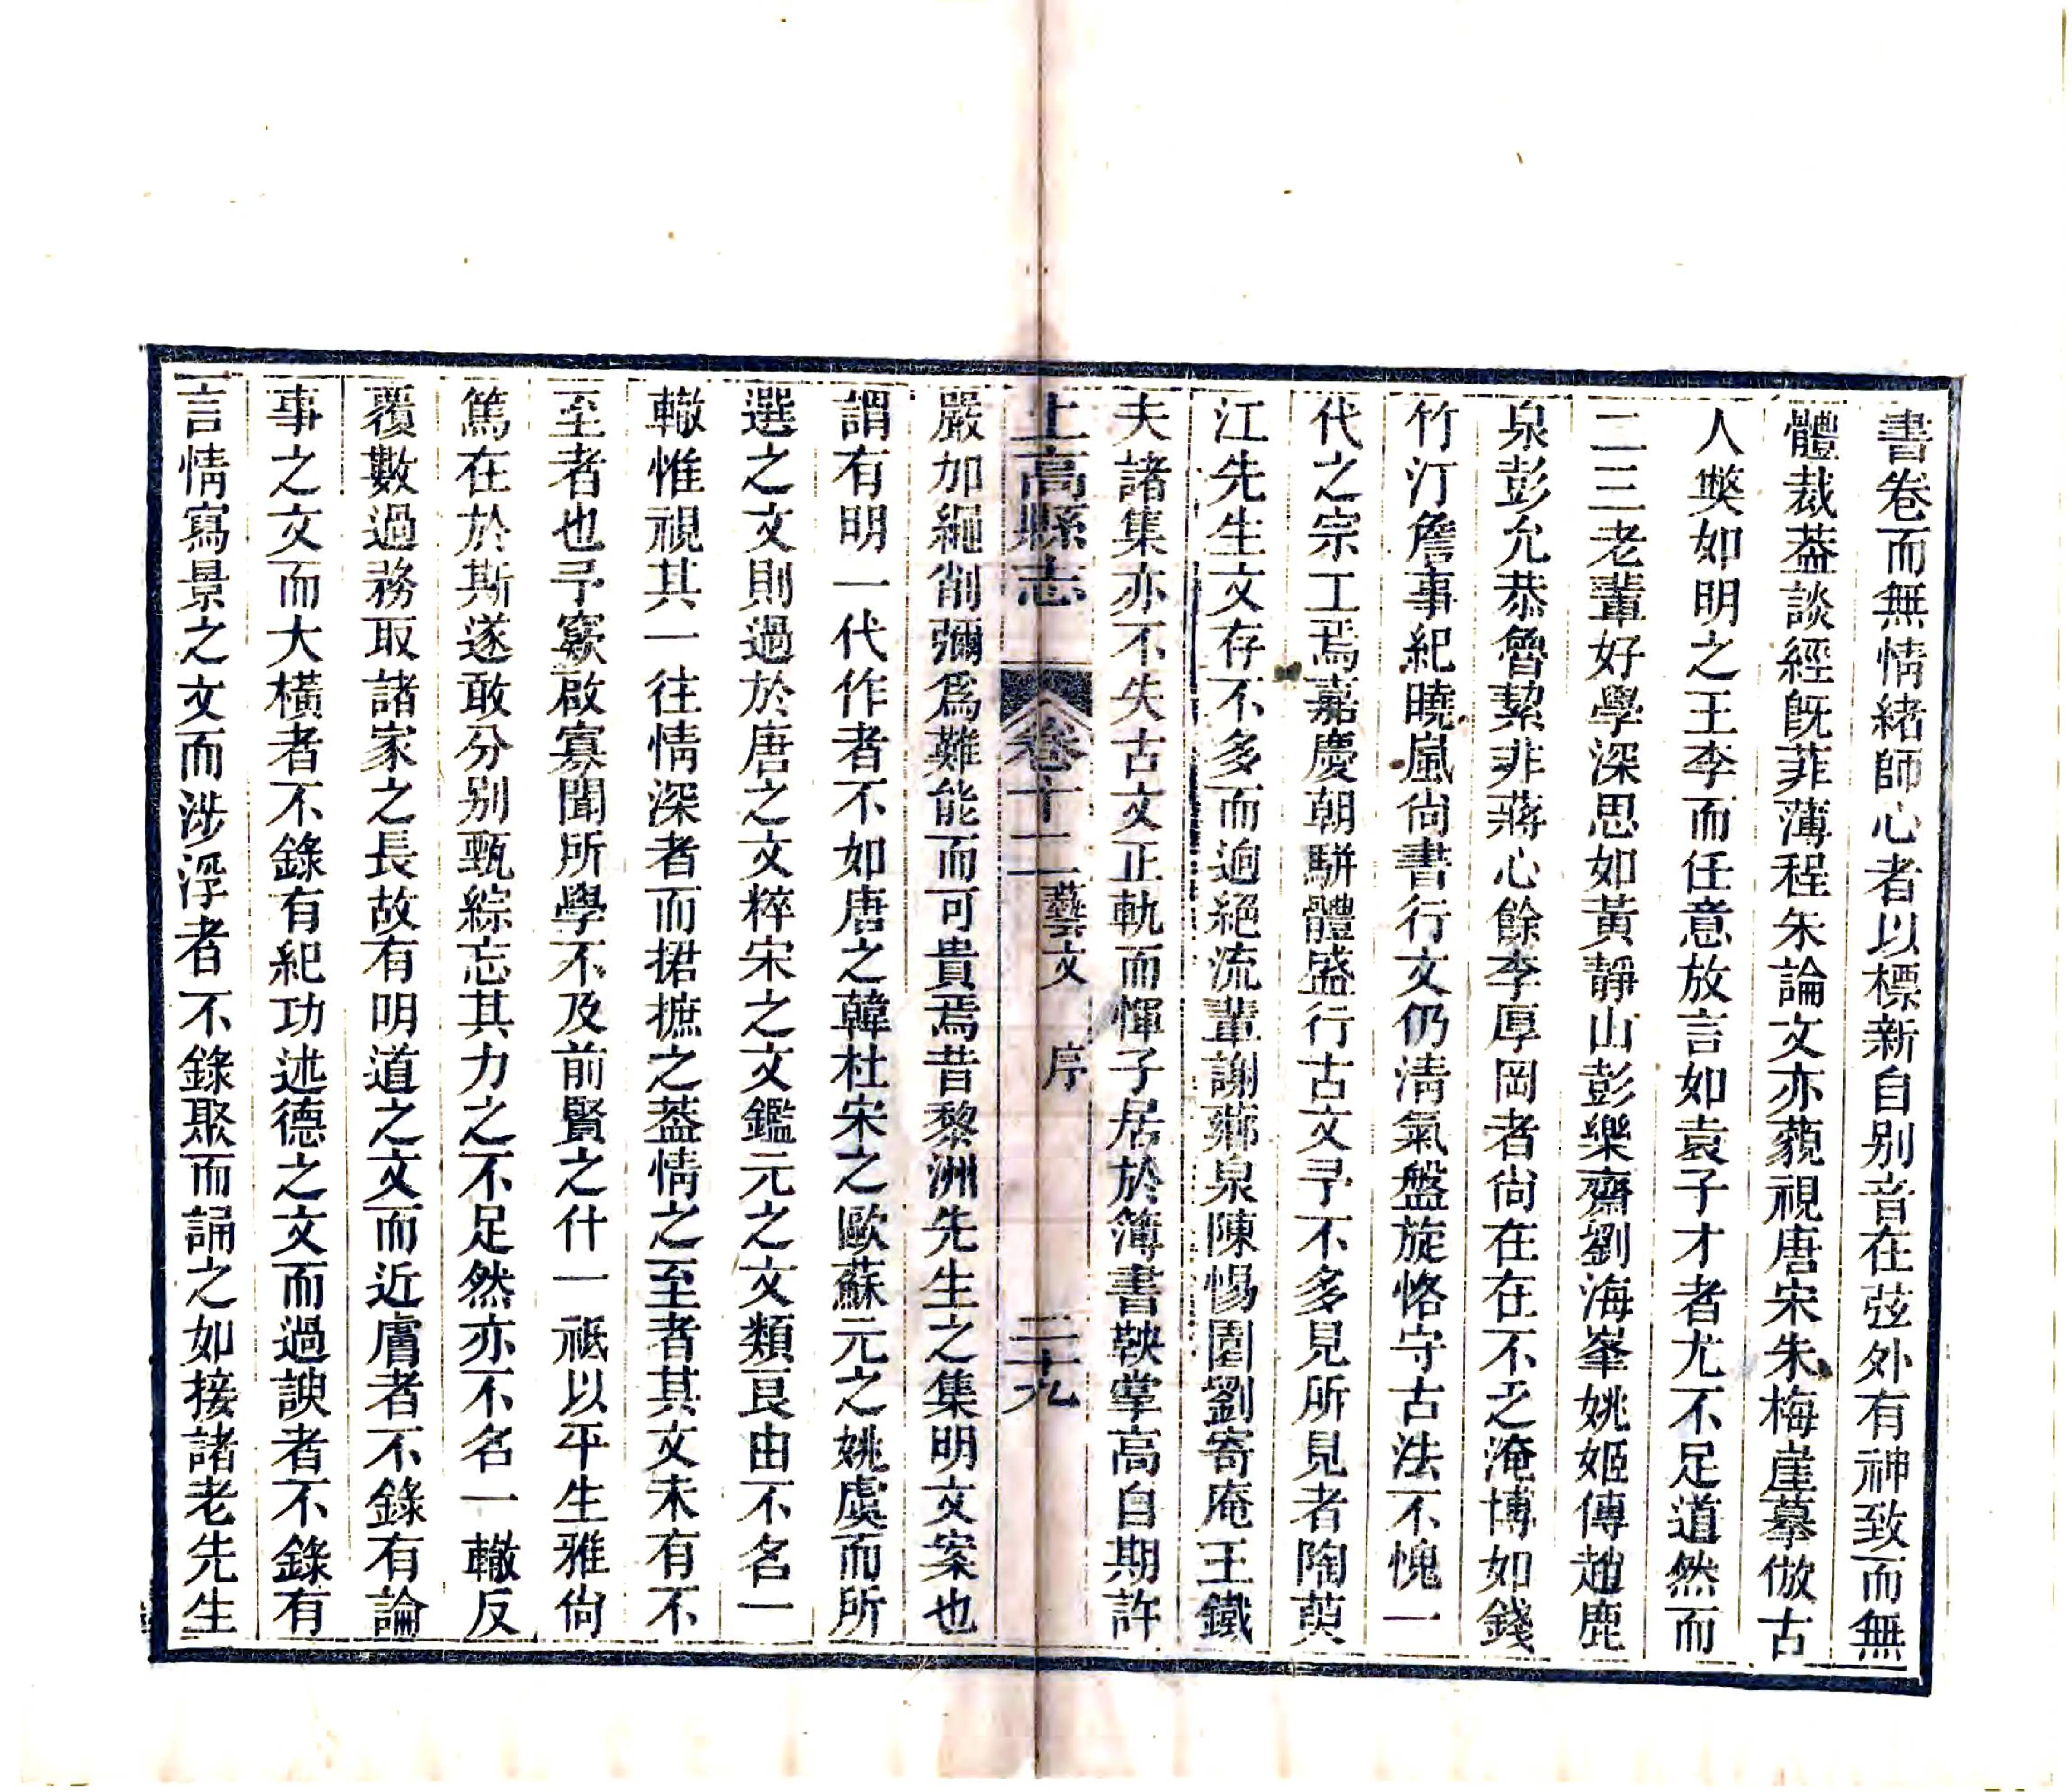 書卷而無情緒師心者以標新自别音在弦外有神致而無
體裁葢談經旣菲薄程朱論文亦藐視唐宋朱梅崖摹倣古
人獘如明之王李而任意放言如袁子才者尤不足道然而
二三老輩好學深思如黃靜山彭樂齋劉海峯姚姬傳趙鹿
泉彭允恭魯絜非蔣心餘李厚岡者尙在在不乏淹博如錢
竹汀詹事紀曉嵐尙書行文仍淸氣盤旋恪守古法不愧一
代之宗工焉嘉慶朝騈體盛行古文予不多見所見者陶萸
江先生文存不多而逈絕流輩謝薌泉陳惕園劉寄庵王鐵
夫諸集亦不失古文正軌而惲子居於簿書鞅掌高自期許
上高縣志 卷十二 藝文 序 二十九
嚴加繩削彌爲難能而可貴焉昔黎洲先生之集明文案也
謂有明一代作者不如唐之韓杜宋之歐蘇元之姚虞而所
選之文則過於唐之文粹宋之文鑑元之文類良由不名一
轍惟視其一往情深者而捃摭之葢情之至者其文未有不
至者也予窾啟寡聞所學不及前賢之什一祗以平生雅尙
篤在於斯遂敢分别甄綜忘其力之不足然亦不名一轍反
覆數過務取諸家之長故有明道之文而近膚者不錄有論
事之文而大橫者不錄有紀功述德之文而過諛者不錄有
言情寫景之文而涉浮者不錄聚而誦之如接諸老先生